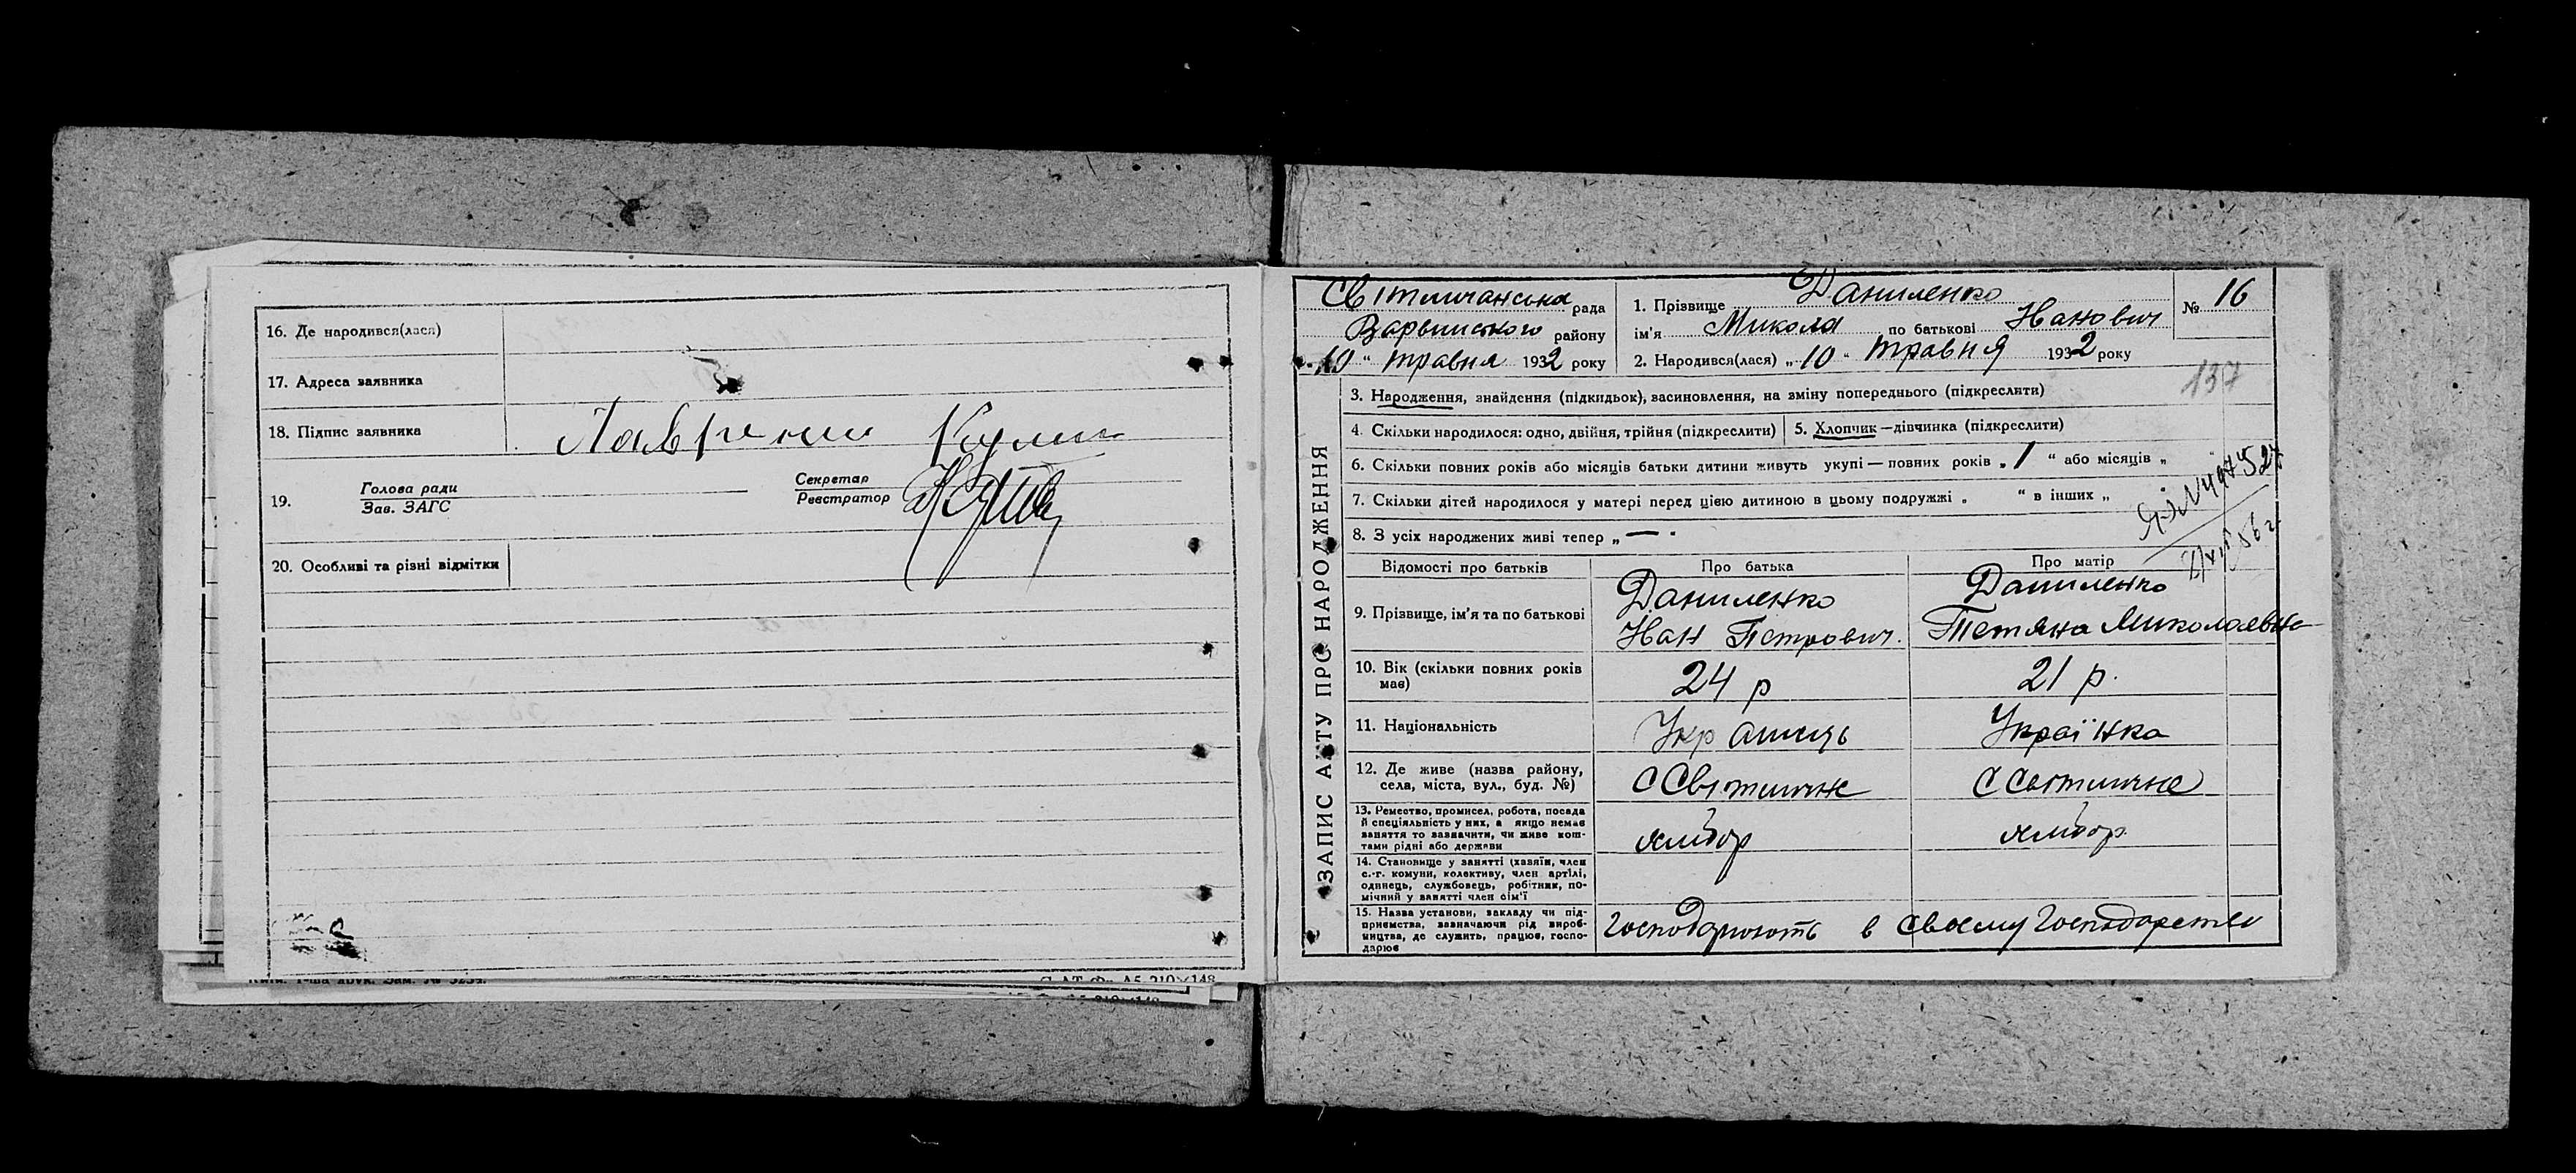 16. Де народився(лася)
17. Адреса заявника
18. Підпис заявника
19. Голова ради
Зав. ЗАГС
Секретар
Реєстратор
20. Особливі та різні відмітки
Світличанська рада
Варвинського району
„ 10 “ травня 1932 року
1. Прізвище Даниленко
ім'я Микола по батькові Іванович
2. Народився(лася) „ 10 “ травня 1932 року
№ 16
137
ЗАПИС АКТУ ПРО НАРОДЖЕННЯ
3. Народження, знайдення (підкидьок), васиновлення, на зміну попереднього (підкреслити)
4. Скільки народилося: одно, двійня, трійня (підкреслити)
5. Хлопчик—дівчинка (підкреслити)
6. Скільки повних років або місяців батьки дитини живуть укупі — повних років „ 1 “ або місяців „
7. Скільки дітей народилося у матері перед цією дитиною в цьому подружжі „ “ в інших „
8. З усіх народжених живі тепер „ —
Відомості про батьків
Про батька
Про матір
9. Прізвище, ім'я та по батькові
Даниленко
Іван Петрович.
Даниленко
Тетяна Миколаєвна
10. Вік (скільки повних років
має)
24 р
21 р.
11. Національність
Українка
12. Де живе (назва району,
села, міста, вул., буд. №)
с Світличне
с Світличне
13. Ремество, промисел, робота, посада
й спеціяльність у них, а якщо немає
заняття то зазначити, чи живе кош-
тами рідні або держави
хлібор
хлібор
14. Становище у занятті (хазяїн, член
с.-г. комуни, колективу, член артілі,
одинець, службовець, робітник, по-
мічний у занятті член сім'ї
15. Назва установи, закладу чи під-
приємства, зазначаючи рід вироб-
ництва, де служить, працює, госпо-
дарює
господарюють в своєму господарстві